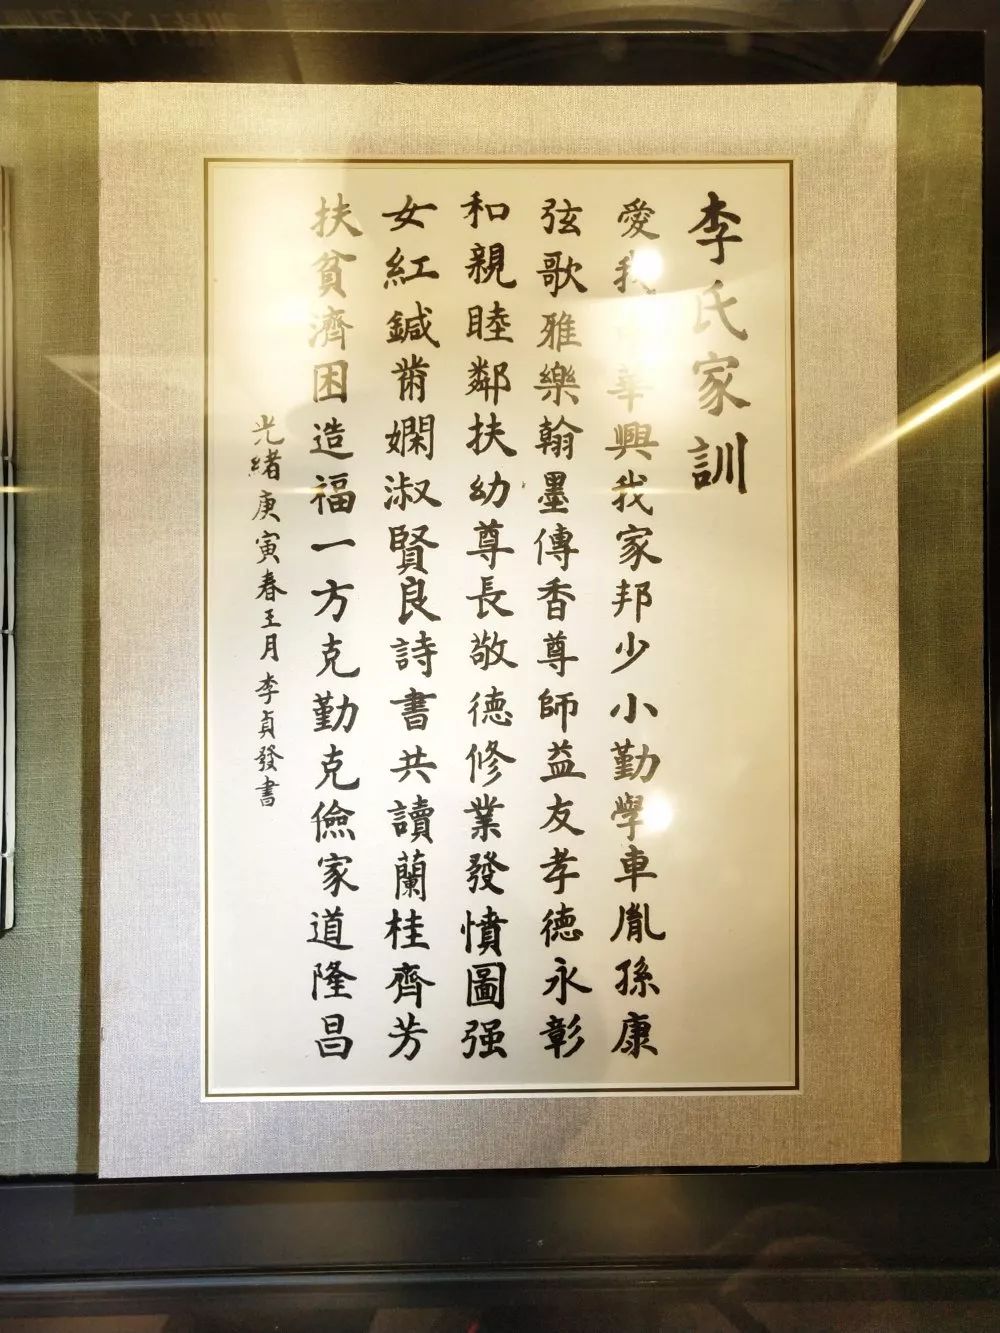 李氏家訓
愛我華興我家邦少小勤學車胤孫康
弦歌雅樂翰墨傳香尊師益友孝德永彰
和親睦鄰扶幼尊長敬德修業發憤圖强
女紅鍼黹嫻淑賢良詩書共讀蘭桂齊芳
扶貧濟困造福一方克勤克儉家道隆昌
光緒庚寅春王月李貞發書